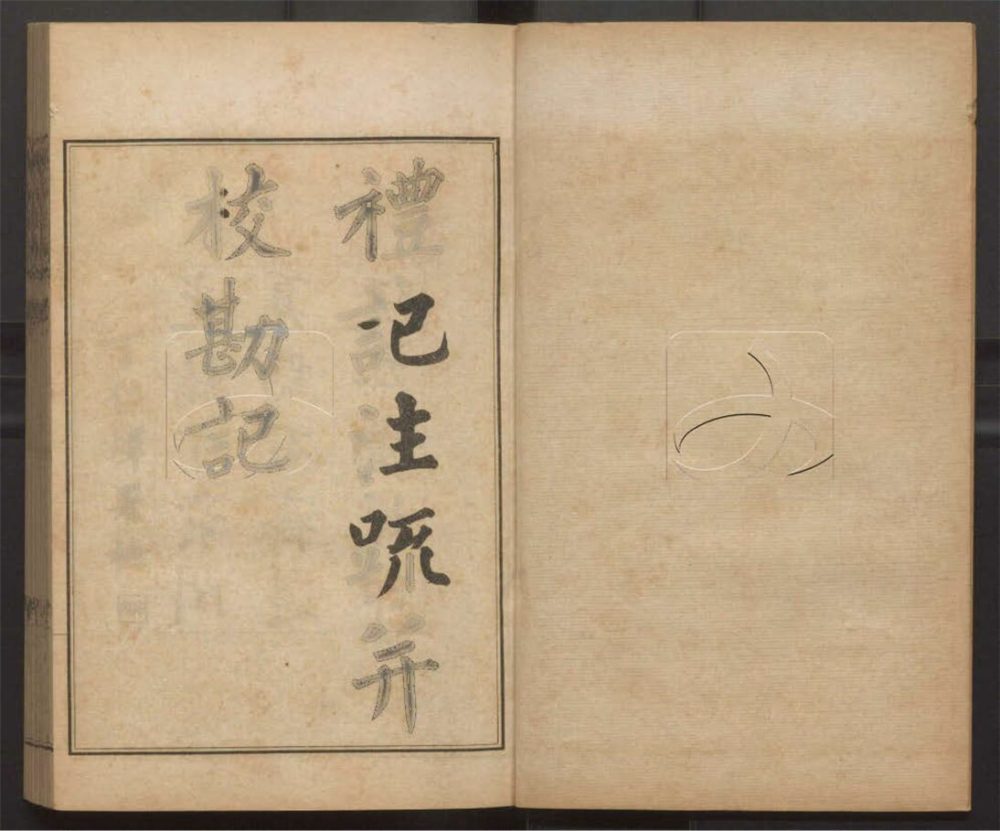 禮記注疏并
校勘記